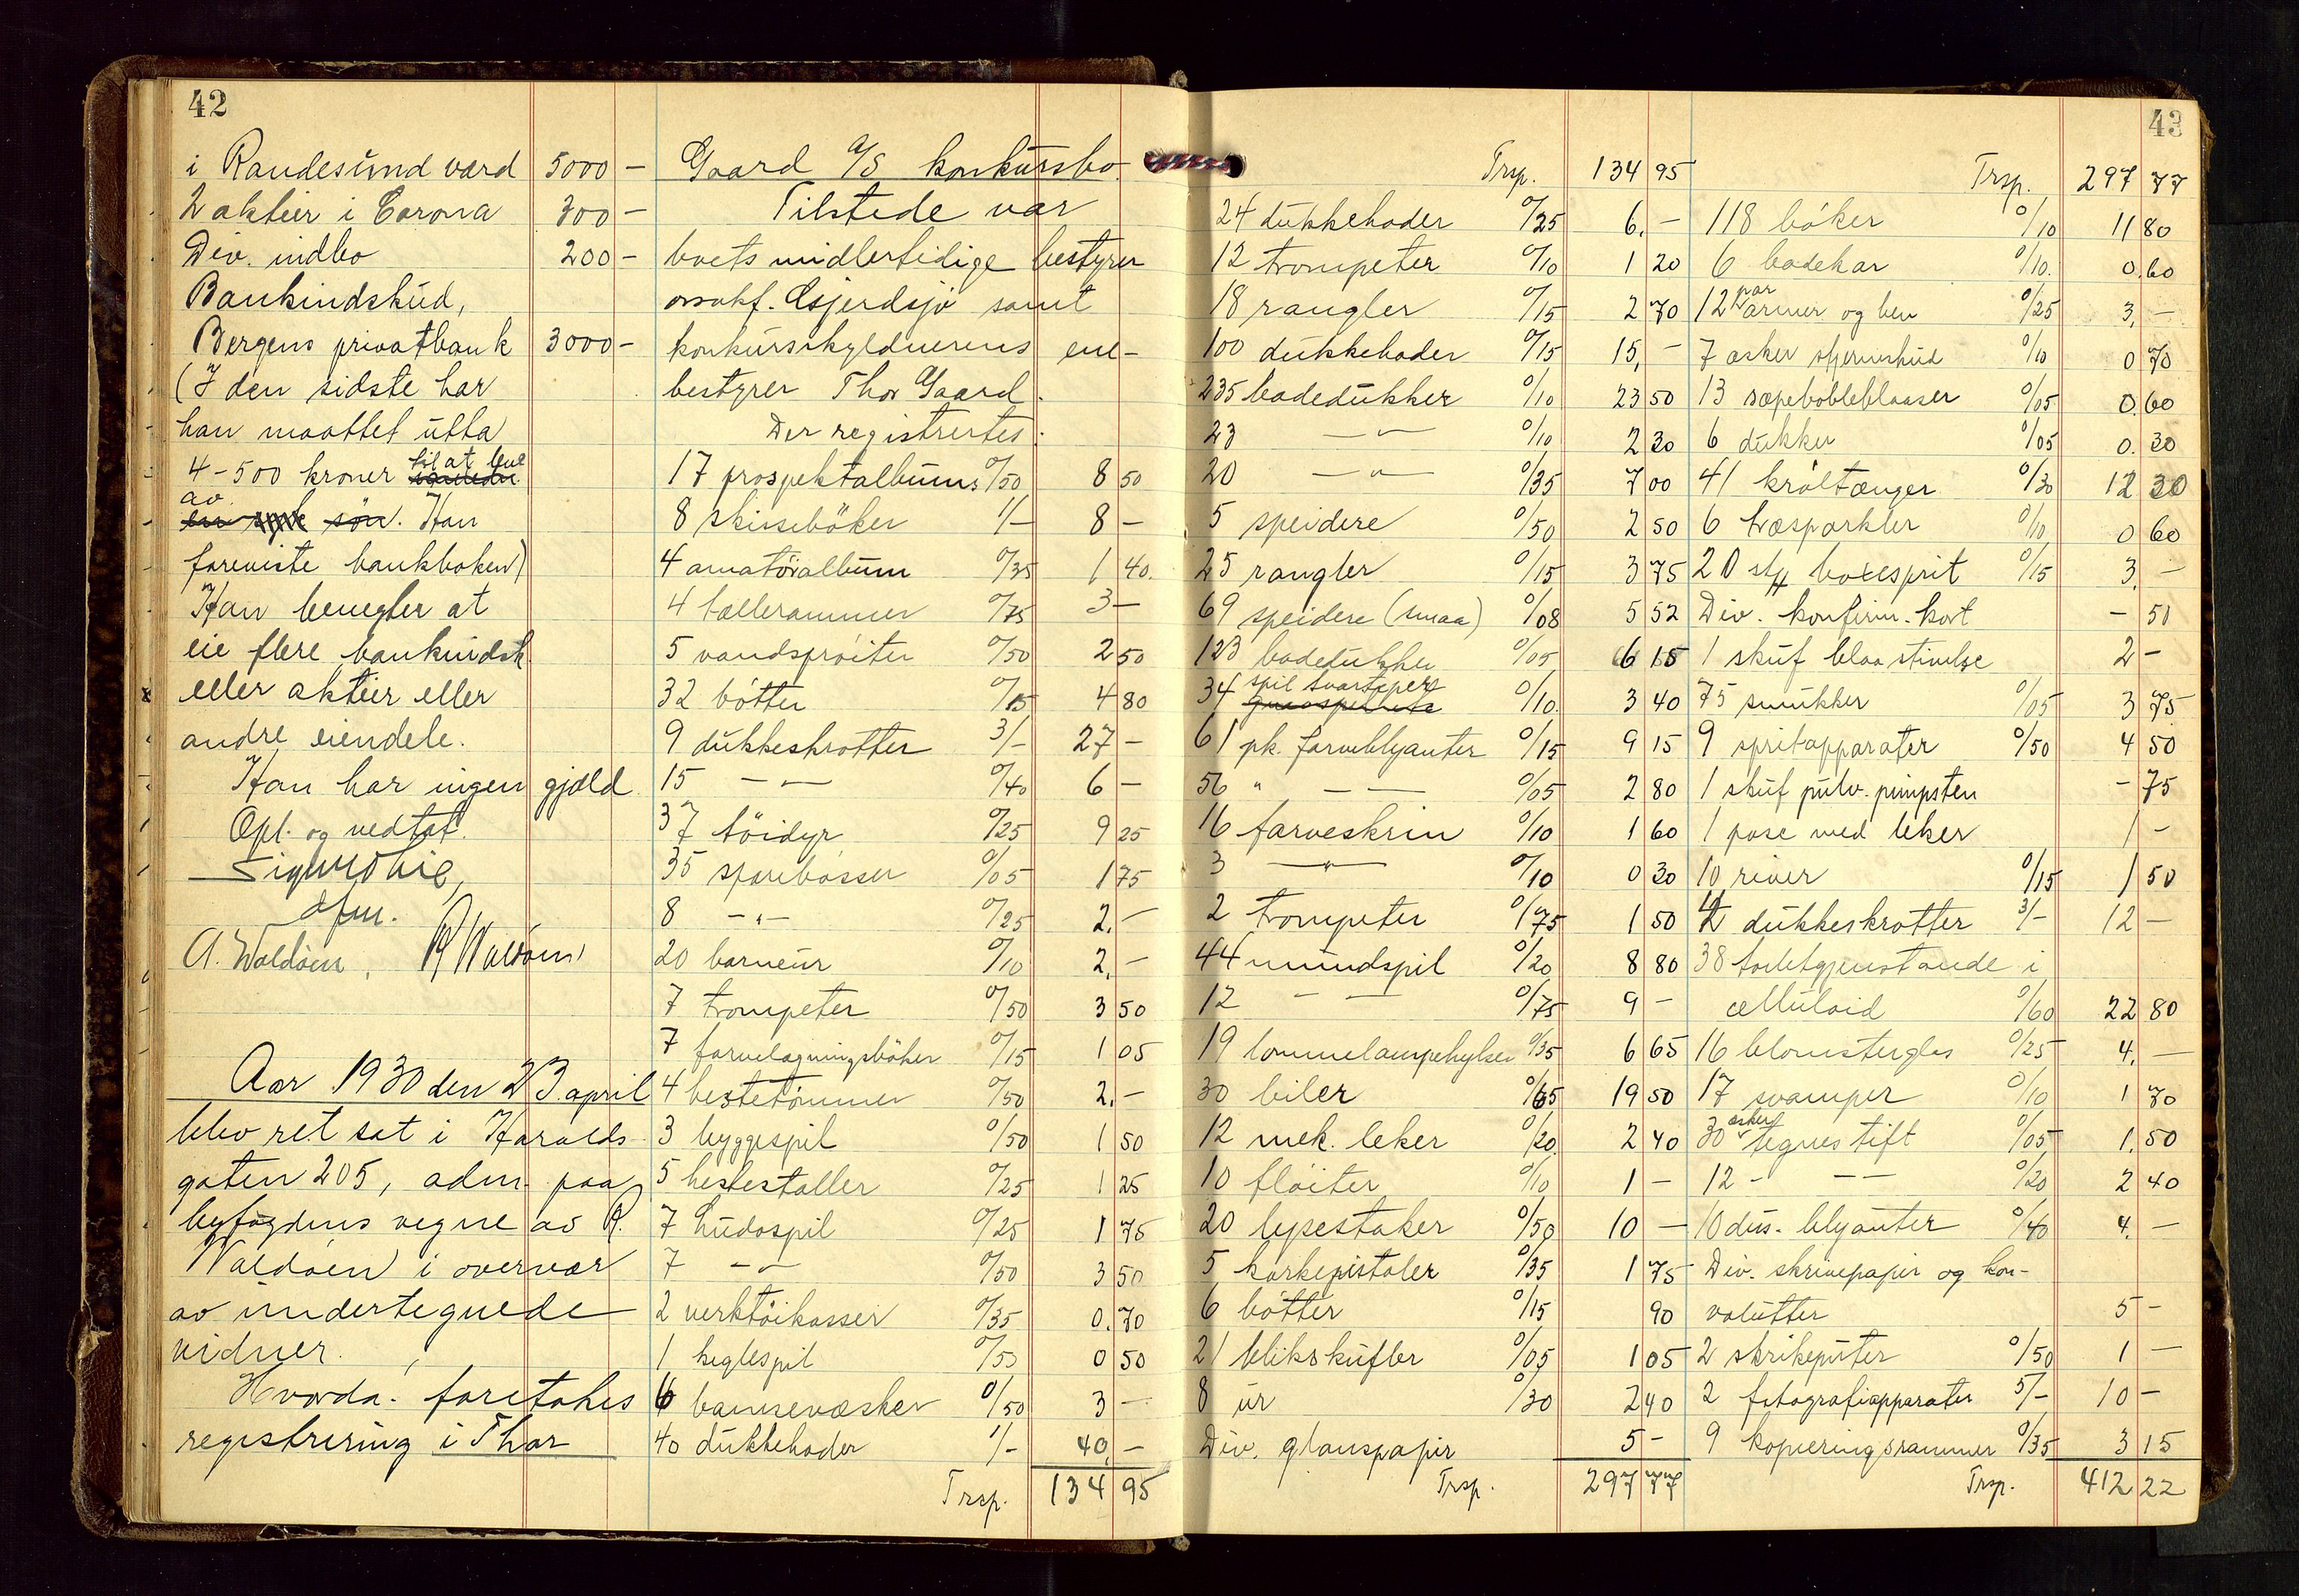 42
i Randesund vard 5000 -
2 aktier i Corona 300 -
Div. indbo 200 -
Bankindskud,
Bergens privatbank 3000 -
(I den sidste har
han maattet utta
4-500 kroner til at leve
av. Han
foreviste bankboken)
Han benegter at
eie flere bankindsk
eller aktier eller
andre eiendele.
Han har ingen gjæld
Opl. og vedtat.
dfm.
A. Waldøen, R Waldøen
Aar 1930 den 23. april
blev ret sat i Haralds-
gaten 205, adm. paa
byfogdens vegne av R.
Waldøen i overvær
av undertegnede
vidner.
Hvorda: foretokes
registrering i Thor
Gaard A/S konkursbo.
Tilstede var
boets midlertidige bestyrer
o.r.sakf. Gjerdsjö samt
konkursskyldnerens ene-
bestyrer Thor Gaard.
Der registrertes:
17 prospektalbums 0/50 8 50
8 skissebøker 1/- 8 -
4 amatöralbum 0/35 1 40.
4 tællerammer 0/75 3 -
5 vandsprøiter 0/50 2 50
32 bøtter 0/15 4 80
9 dukkeskrotter 3/- 27 -
15 - " - 0/40 6 -
37 töidyr 0/25 9 25
35 sparebøsser 0/05 1 75
8 - " - 0/25 2. -
20 barneur 0/10 2. -
7 trompeter 0/50 3 50
7 farvelagningsbøker 0/15 1 05
4 hestetømmer 0/50 2. -
3 byggespil 0/50 1 50
5 hestestaller 0/25 1 25
7 Ludospil 0/25 1 75
7 - " - 0/50 3 50
2 verktøikasser 0/35 0.70
1 keglespil 0/50 0 50
6 bamsevæsker 0/50 3 -
40 dukkehoder 1/- 40. -
Trsp. 134 95
Trsp. 134 95
24 dukkehoder 0/25 6. -
12 trompeter 0/10 1 20
18 rangler 0/15 2 70
100 dukkehoder 0/15 15, -
235 badedukker 0/10 23 50
23 - " - 0/10 2 30
20 - " - 0/35 7 00
5 speidere 0/50 2 50
25 rangler 0/15 3 75
69 speidere (smaa) 0/08 5 52
123 badedukker 0/05 6 15
34 spil svarteper 0/10. 3 40
61 pk. farveblyanter 0/15 9 15
56 " - - 0/05 2 80
16 farveskrin 0/10 1 60
3 - " - 0/10 0 30
2 trompeter 0/75 1 50
44 mundspil 0/20 8 80
12 - - 0/75 9 -
19 lommelampehylser 0/35 6 65
30 biler 0/65 19 50
12 mek. leker 0/20. 2 40
10 fløiter 0/10 1 -
20 lysestaker 0/50 10 -
5 korkepistoler 0/35 1 75
6 bøtter 0/15 90
21 blikskufler 0/05 1 05
8 ur 0/30 2 40
Div. glanspapir 5 -
Trsp. 297 77
43
Trsp. 297 77
118 bøker 0/10 11 80
6 badekar 0/10. 0.60
12 par armer og ben 0/25 3, -
7 æsker stjerneskud 0/10 0 70
13 sæpebobleblaaser 0/05 0.60
6 dukker 0/05 0.30
41 krøltænger 0/30 12 30
6 træsparkler 0/10 0 60
20 stk 0/15 3. -
Div. konfirm. kort - 50
1 skuf blaa stivelse 2 -
75 smukker 0/05 3 75
9 spritapparater 0/50 4 50
1 skuf pulv. pimpsten - 75
1 pose med leker 1 -
10 river 0/15 1 50
4 dukkeskrotter 3/- 12 -
38 toiletgjenstande i
celluloid 0/60 22 80
16 blomsterglas 0/25 4. -
17 svamper 0/10 1 70
30 æsker tegnestift 0/05 1.50
12 - - - 0/20 2 40
10 dus. blyanter 0/40 4. -
Div. skrivepapir og kon-
volutter 5 -
2 skrikeputer 0/50 1 -
2 fotografiapparater 5/- 10 -
9 kopieringsrammer 0/35 3 15
Trsp. 412 22